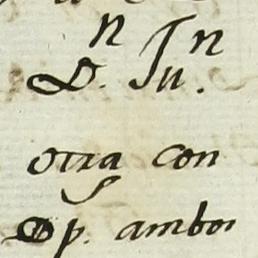 D.ⁿ Juⁿ.
otra con
Dp. ambos